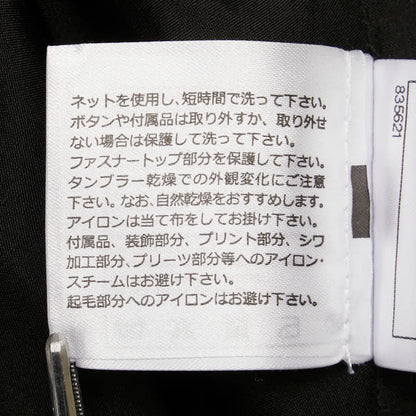 ネットを使用し、短時間で洗って下さい。
ボタンや付属品は取り外すか、取り外せ
ない場合は保護して洗って下さい。
ファスナートップ部分を保護して下さい。
タンブラー乾燥での外観変化にご注意
下さい。なお、自然乾燥をおすすめします。
アイロンは当て布をしてお掛け下さい。
付属品、装飾部分、プリント部分、シワ
加工部分、プリーツ部分等へのアイロン・
スチームはお避け下さい。
起毛部分へのアイロンはお避け下さい。
835621